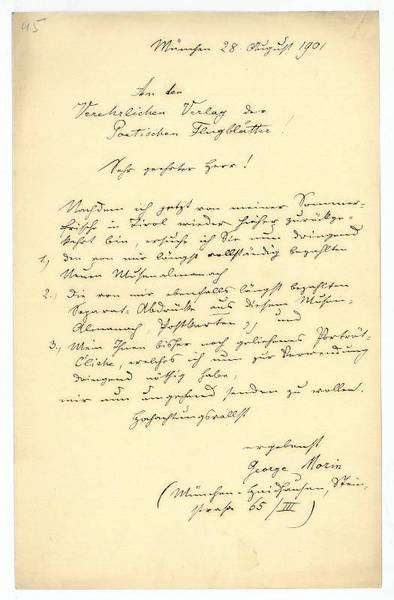 45
München 28. August 1901
An den
Verehrlichen Verlag der
Poetischen Flugblätter!
Sehr geehrter Herr!
Nachdem ich jetzt von meiner Sommer-
frische in Tirol wieder hieher zurückge-
kehrt bin, ersuche ich Sie nun dringend
1.) den von mir längst vollständig bezahlten
Neuen Musenalmanach
2.) Die von mir ebenfalls längst bezahlten
Separat-Abdrücke aus diesem Musen-
Almanach, (Postkarten?) und
3.) Mein Ihnen bisher noch geliehenes Porträt-
Cliche, welches ich nun zur Verwendung
dringend nöthig habe,
mir nun umgehend senden zu wollen.
Hochachtungsvollst
ergebenst
George Morin
(München-Haidhausen, Stein-
straße 65/III)